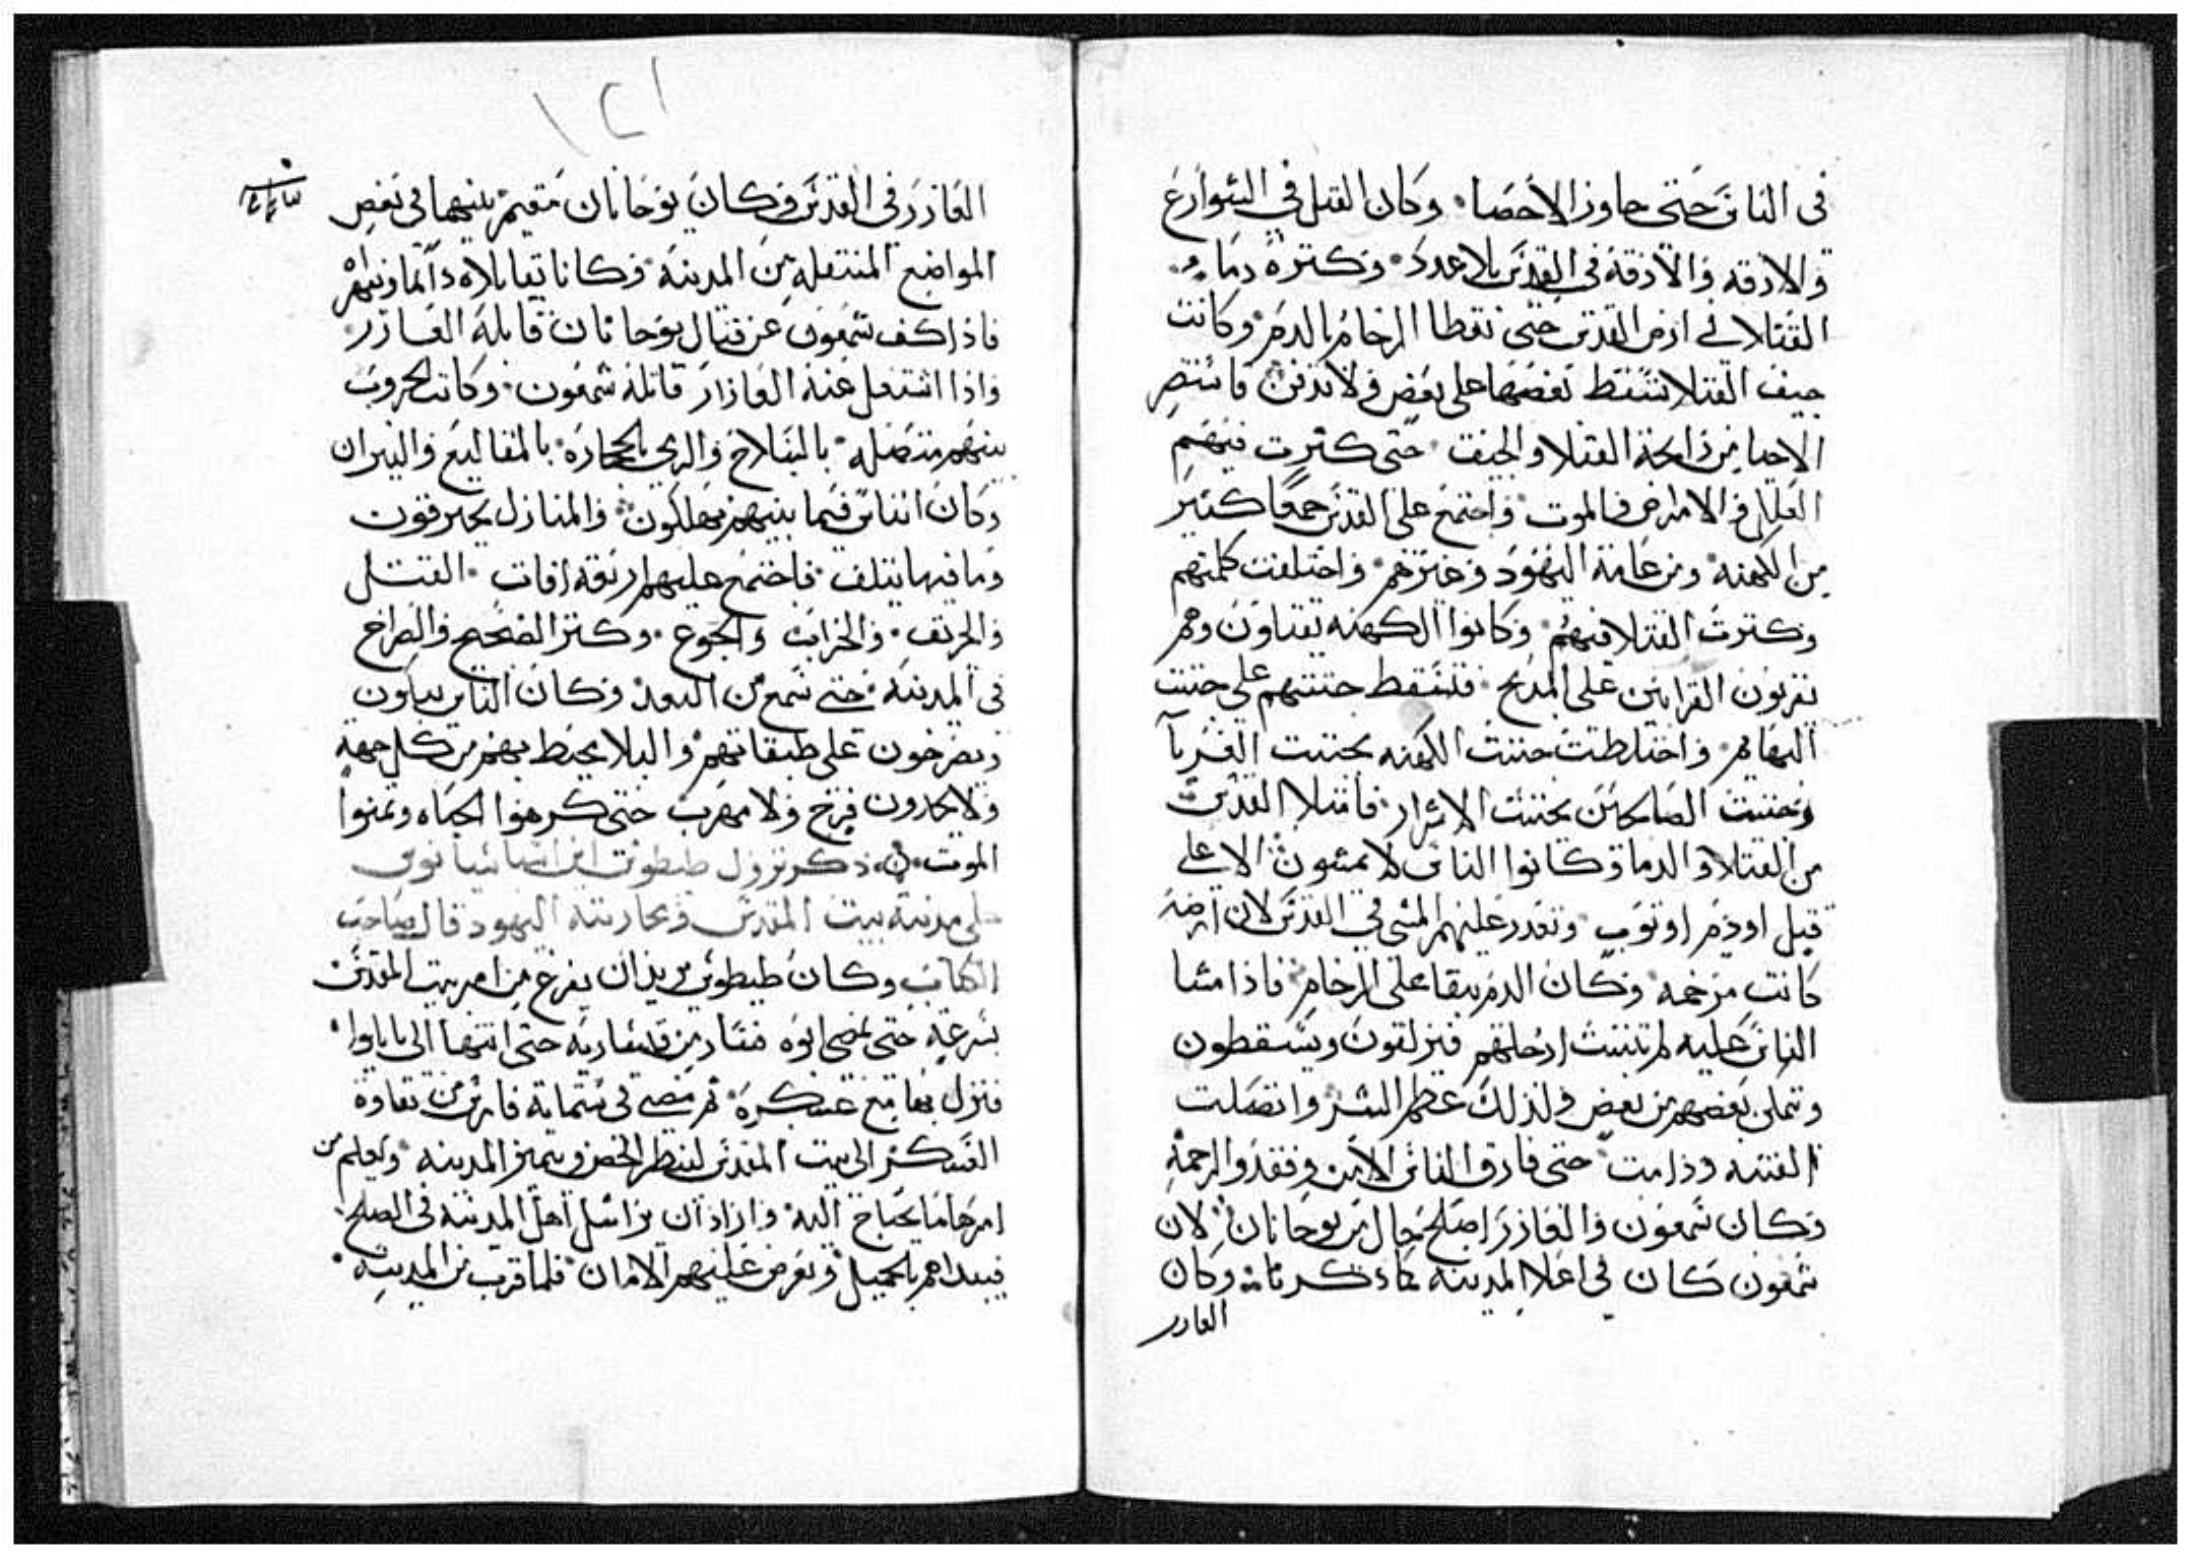 في الناس حتى جاوز الاحصا. وكان القتل في الشوارع
والازقه والازقة في القدس بلا عدد. وكترة دماء
القتلا في ارض القدس حتى تغطا الرخام بالدم. وكانت
جيف القتلا تسقط بعضها على بعض ولا تدفن
الاحيا من رايحة القتلا والجيف. حتى كثرت فيهم
العلل والامراض والموت. واجتمع على القدس جمعا كثير
من الكهنه. ومن عامة اليهود وغيرهم. واختلفت كلمتهم
وكترت القتلا فيهم. وكانوا الكهنه يقتلون وهم
يقربون القرابين على المدبح. فتسقط جتتهم على جتت
البهايم. واختلطت جتت الكهنه بجتت الغربآ
وجتت الصالحين بجتت الاشرار. فامتلا القدس
من القتلا والدما وكانوا الناس لا يمشون الا على
قتيل او دم او توب. وتعدر عليهم المشي في القدس لان ارضه
كانت مرخمه. وكان الدم يبقا على الرخام. فاذا مشا
الناس عليه لم تتبت ارجلهم فيزلقون ويسقطون
بعضهم من بعض ولذلك عظم الشر واتصلت
الفتنه ودامت. حتى فارق الناس الامن وفقدوا الرحمة
وكان شمعون والعازر اصلح حال من يوحانان. لان
شمعون كان في اعلا المدينه كما دكرنا. وكان
العازر
العازر في القدس وكان يوحانان مقيم بينهما في بعض
المواضع المنتقله من المدينة. وكانا يقابلاه دآيما
فاذا كف شمعون عن قتال يوحانان قابلة العازر
واذا اشتغل عنه العازار قاتلة شمعون. وكانت الحروب
بينهم متصله. بالسلاح والرمي بالحجاره. بالمقاليع والنيران
وكان الناس فيما بينهم يهلكون. والمنازل يحترقون
وما فيها يتلف. فاجتمع عليهم اربعة افات. القتل
والحريق. والخراب والجوع. وكتر الضجيج والصراخ
في المدينة. حتى سمع من البعد. وكان الناس يبكون
ويصرخون على طبقاتهم. والبلا يحيط بهم من كل جهة
ولا يجدون فرج ولا مهرب حتى كرهوا الحياه وتمنوا
الموت. دكر نزول طيطوس ابن
على مدينة بيت المقدس ومحاربته اليهود قال صاحب
الكتاب وكان طيطوس يريد ان يفرغ من امر بيت المقدس
بسرعة حتى يمضي ابوه فسار من قيساريه حتى انتها الى
فنزل بها مع عسكره. تم مضى في ستماية فارس من نقاوة
العسكر الى بيت المقدس لينظر الحصن ويميز المدينه. وليعلم من
امرها ما يحتاج اليه. واراد ان يراسل اهل المدينة في الصلح.
فيبداهم بالجميل ويعرض عليهم الامان. فلما قرب من المدينة.